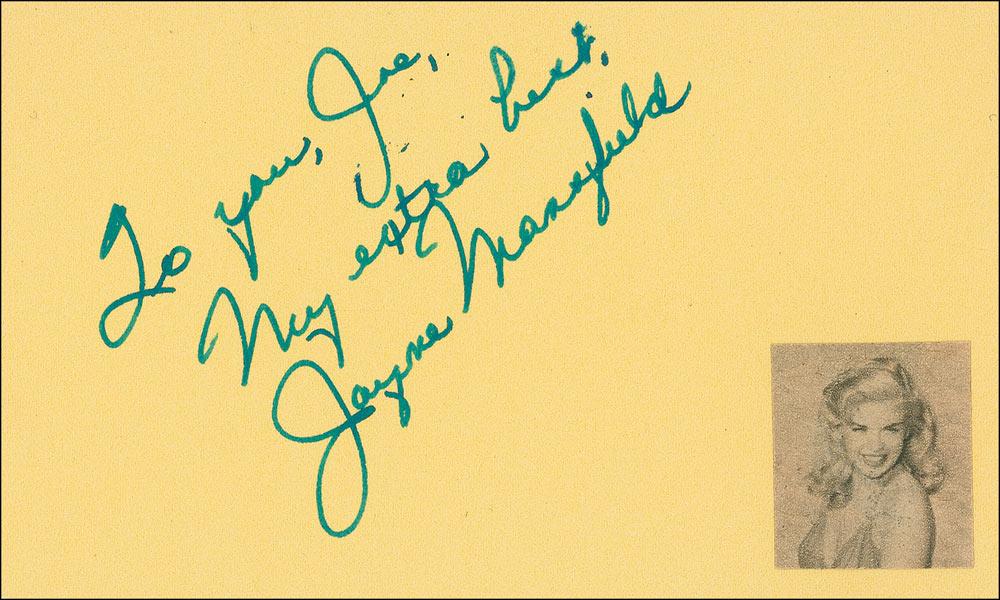 To you, Joe,
My extra best,
Jayne Mansfield